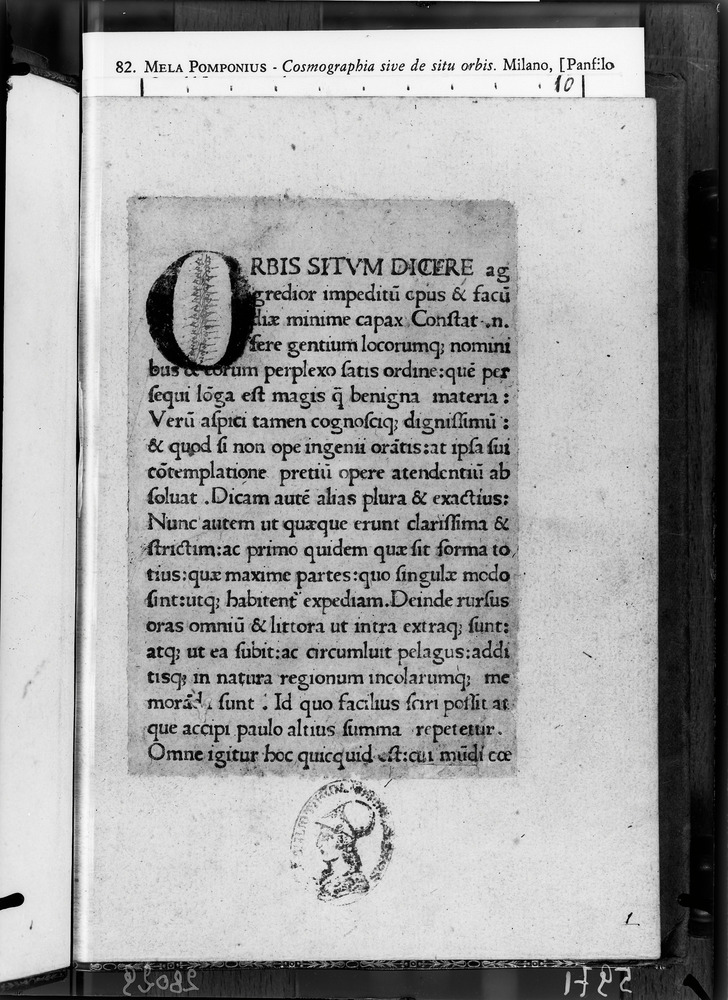 82. MELA POMPONIUS - Cosmographia sive de situ orbis. Milano, [Panfilo
10
ORBIS SITVM DICERE ag
gredior impeditū opus & facū
diæ minime capax. Conſtat .n.
fere gentium locorumq; nomini
bus & eorum perplexo ſatis ordine:quē per
ſequi lōga eſt magis q̄ benigna materia:
Verū aſpici tamen cognoſciq; digniſſimū:
& quod ſi non ope ingenii orātis:at ipſa ſui
cōtemplatione pretiū opere atendentiū ab
ſoluat .Dicam autē alias plura & exactius:
Nunc autem ut quæque erunt clariſſima &
ſtrictim:ac primo quidem quæ ſit forma to
tius:quæ maxime partes:quo ſingulæ modo
ſint:utq; habitent expediam.Deinde rurſus
oras omniū & littora ut intra extraq; ſunt:
atq; ut ea ſubit:ac circumluit pelagus:addi
tisq; in natura regionum incolarumq; me
morād ı ſunt . Id quo facilius ſciri poſſit at
que accipi paulo altius ſumma repetetur.
Omne igitur hoc quicquid eſt:cui mūdi cœ
1
28029
5971